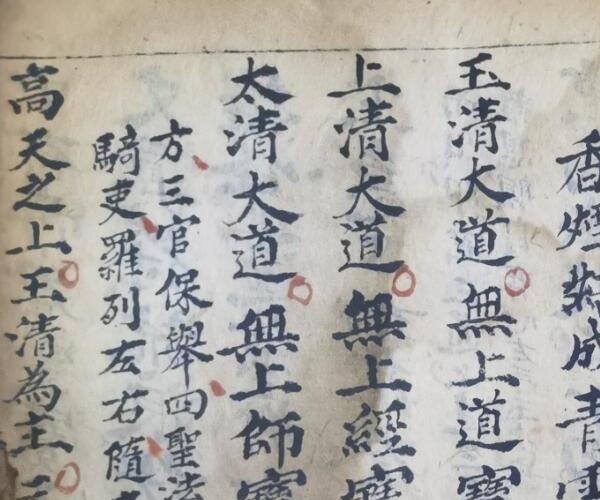 香煙㪚成青雲
玉清大道無上道寶
上清大道無上經寶
太清大道無上師寶
方三官保舉四聖
騎吏羅列左右隨
高天之上玉清為主